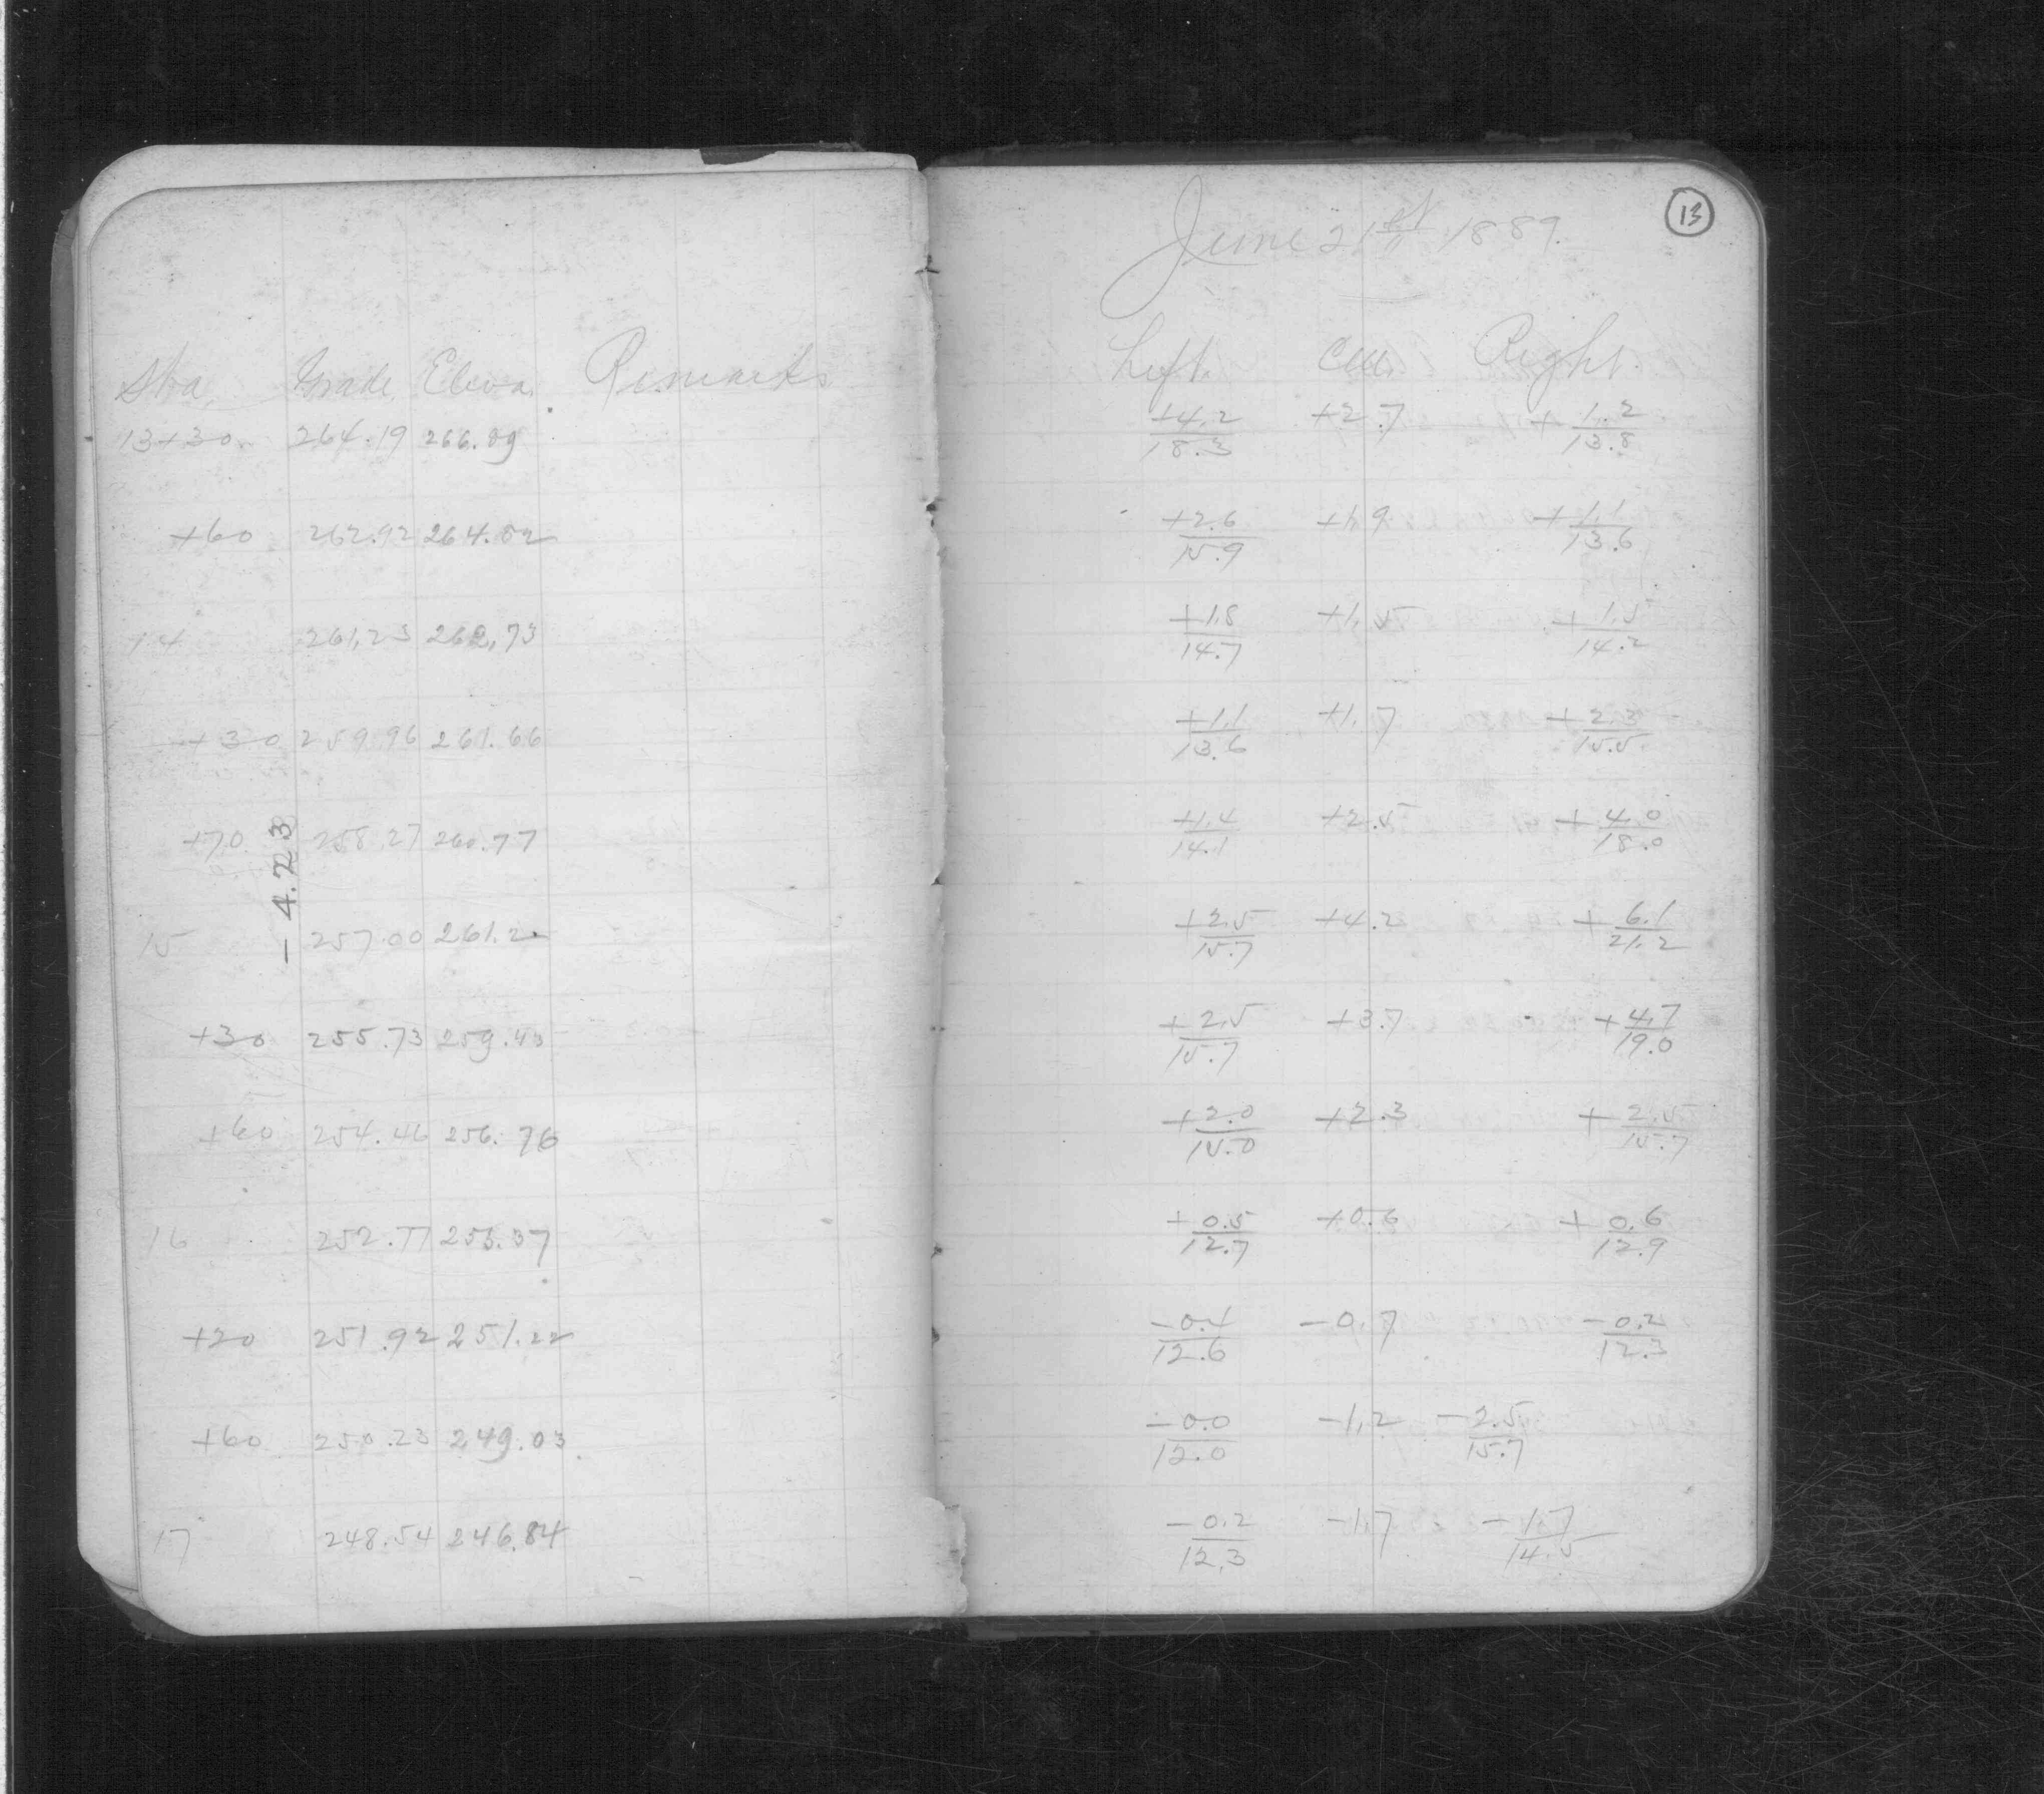 Sta. Grade Eleva. Remarks
13+30 264.19 266.89
+60 262.92 264.82
14 261.23 262.73
+30 259.96 261.66
+70 258.27 260.77
- 4.223
15 257.00 261.20
+30 255.73 259.43
+60 254.46 256.76
16 252.77 253.37
+20 251.92 251.22
+60 250.23 249.03
17 248.54 246.84
13
June 21st 1889.
Left. Cen. Right.
+4.2 +2.7 + 1.2
18.3 13.8
+2.6 +1.9 + 1.1
15.9 13.6
+1.8 +1.5 + 1.5
14.7 14.2
+1.1 +1.7 + 2.3
13.6 15.5
+1.4 +2.5 + 4.0
14.1 18.0
+2.5 +4.2 + 6.1
15.7 21.2
+2.5 +3.7 +4.7
15.7 19.0
+2.0 +2.3 + 2.5
15.0 15.7
+0.5 +0.6 + 0.6
12.7 12.9
-0.4 -0.7 -0.2
12.6 12.3
-0.0 -1.2 -2.5
12.0 15.7
-0.2 -1.7 -1.7
12.3 14.5